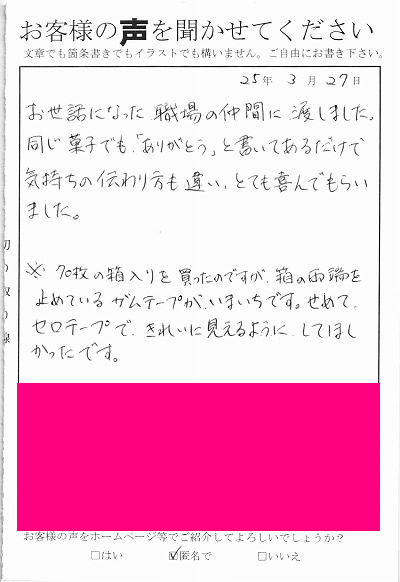 お客様の声を聞かせてください
文章でも箇条書きでもイラストでも構いません。ご自由にお書き下さい。
25年 3月 27日
お世話になった、職場の仲間に渡しました。
同じ菓子でも、「ありがとう」と書いてあるだけで
気持ちの伝わり方も違い、とても喜んでもらい
ました。
※ 70枚の箱入りを買ったのですが、箱の両端を
止めているガムテープが、いまいちです。せめて、
セロテープで、きれいに見えるように、してほし
かったです。
お客様の声をホームページ等でご紹介してよろしいでしょうか？
□はい ☑匿名で □いいえ